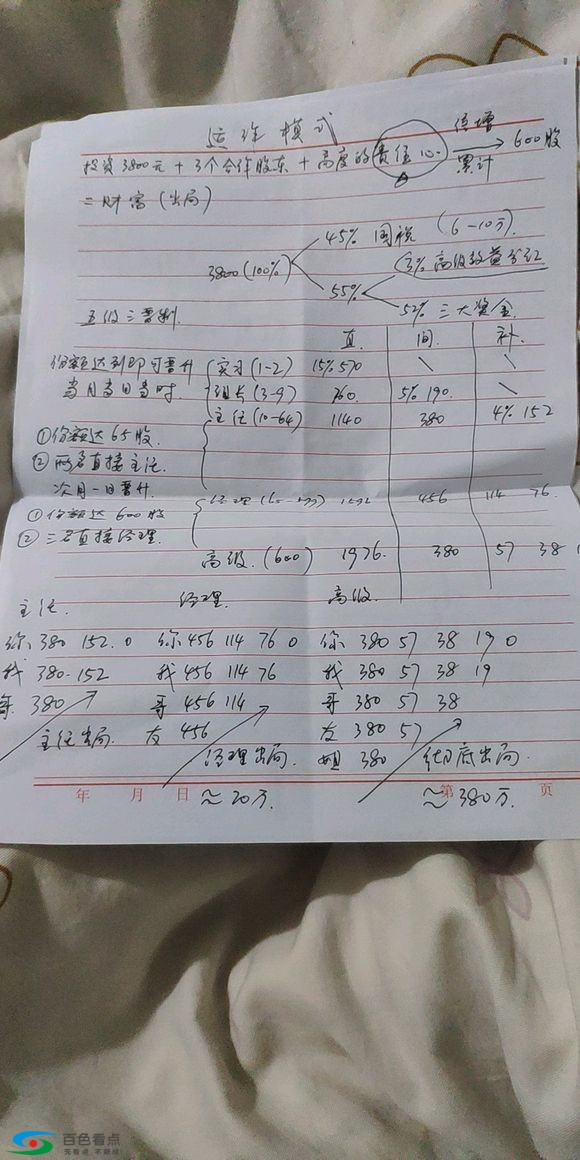 运作模式
投资3800元 + 3个合作股东 + 高度的责任心 倍增 累计 600股
= 财富(出局)
45% 国税 (6-10万)
3800(100%)
3% 高级效益分红
55%
52% 三大奖金
五级三晋制
直 间 补
份额达到即可晋升 实习(1-2) 15% 570 \ \
当月当日当时 组长(3-9) 760 5% 190 \
主任(10-64) 1140 380 4% 152
①份额达65股
②两名直接主任
次月一日晋升
经理 1592 456 114 76
①份额达600股
②三名直接经理
高级(600) 1976 380 57 38
主任 经理 高级
你 380 152 0 你 456 114 76 0 你 380 57 38 19 0
我 380 152 我 456 114 76 我 380 57 38 19
哥 380 哥 456 114 哥 380 57 38
主任出局 友 456 友 380 57
经理出局 姐 380 彻底出局
年 月 日 第 页
≈20万 ≈380万
百色看点